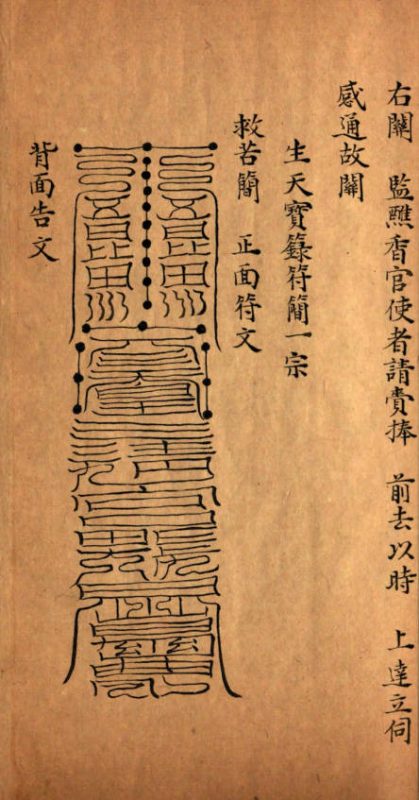 右關　監醮香官使者請賫捧　前去以時　上達立伺
感通故關
生天寶籙符簡一宗
救苦簡　正面符文
背面告文